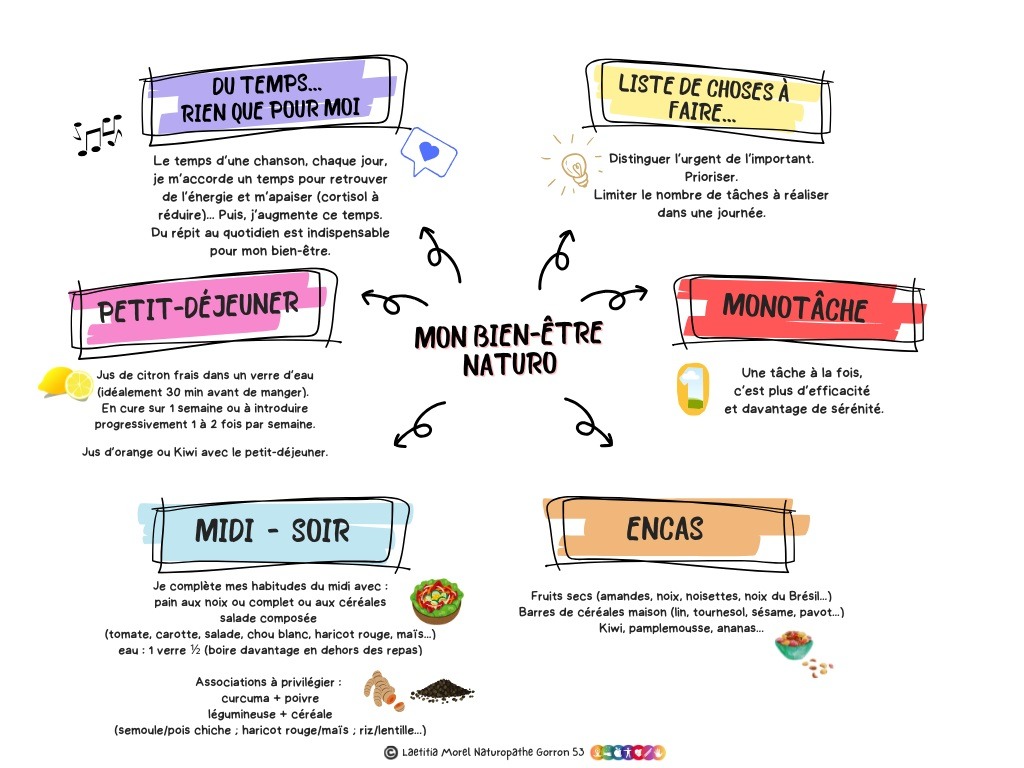 DU TEMPS...
RIEN QUE POUR MOI
Le temps d'une chanson, chaque jour,
je m'accorde un temps pour retrouver
de l'énergie et m'apaiser (cortisol à
réduire)... Puis, j'augmente ce temps.
Du répit au quotidien est indispensable
pour mon bien-être.
LISTE DE CHOSES À
FAIRE...
Distinguer l'urgent de l'important.
Prioriser.
Limiter le nombre de tâches à réaliser
dans une journée.
PETIT-DÉJEUNER
Jus de citron frais dans un verre d'eau
(idéalement 30 min avant de manger).
En cure sur 1 semaine ou à introduire
progressivement 1 à 2 fois par semaine.
Jus d'orange ou Kiwi avec le petit-déjeuner.
MON BIEN-ÊTRE
NATURO
MONOTÂCHE
1
Une tâche à la fois,
c'est plus d'efficacité
et davantage de sérénité.
MIDI - SOIR
Je complète mes habitudes du midi avec :
pain aux noix ou complet ou aux céréales
salade composée
(tomate, carotte, salade, chou blanc, haricot rouge, maïs...)
eau : 1 verre ½ (boire davantage en dehors des repas)
Associations à privilégier :
curcuma + poivre
légumineuse + céréale
(semoule/pois chiche ; haricot rouge/maïs ; riz/lentille...)
ENCAS
Fruits secs (amandes, noix, noisettes, noix du Brésil...)
Barres de céréales maison (lin, tournesol, sésame, pavot...)
Kiwi, pamplemousse, ananas...
© Laetitia Morel Naturopathe Gorron 53